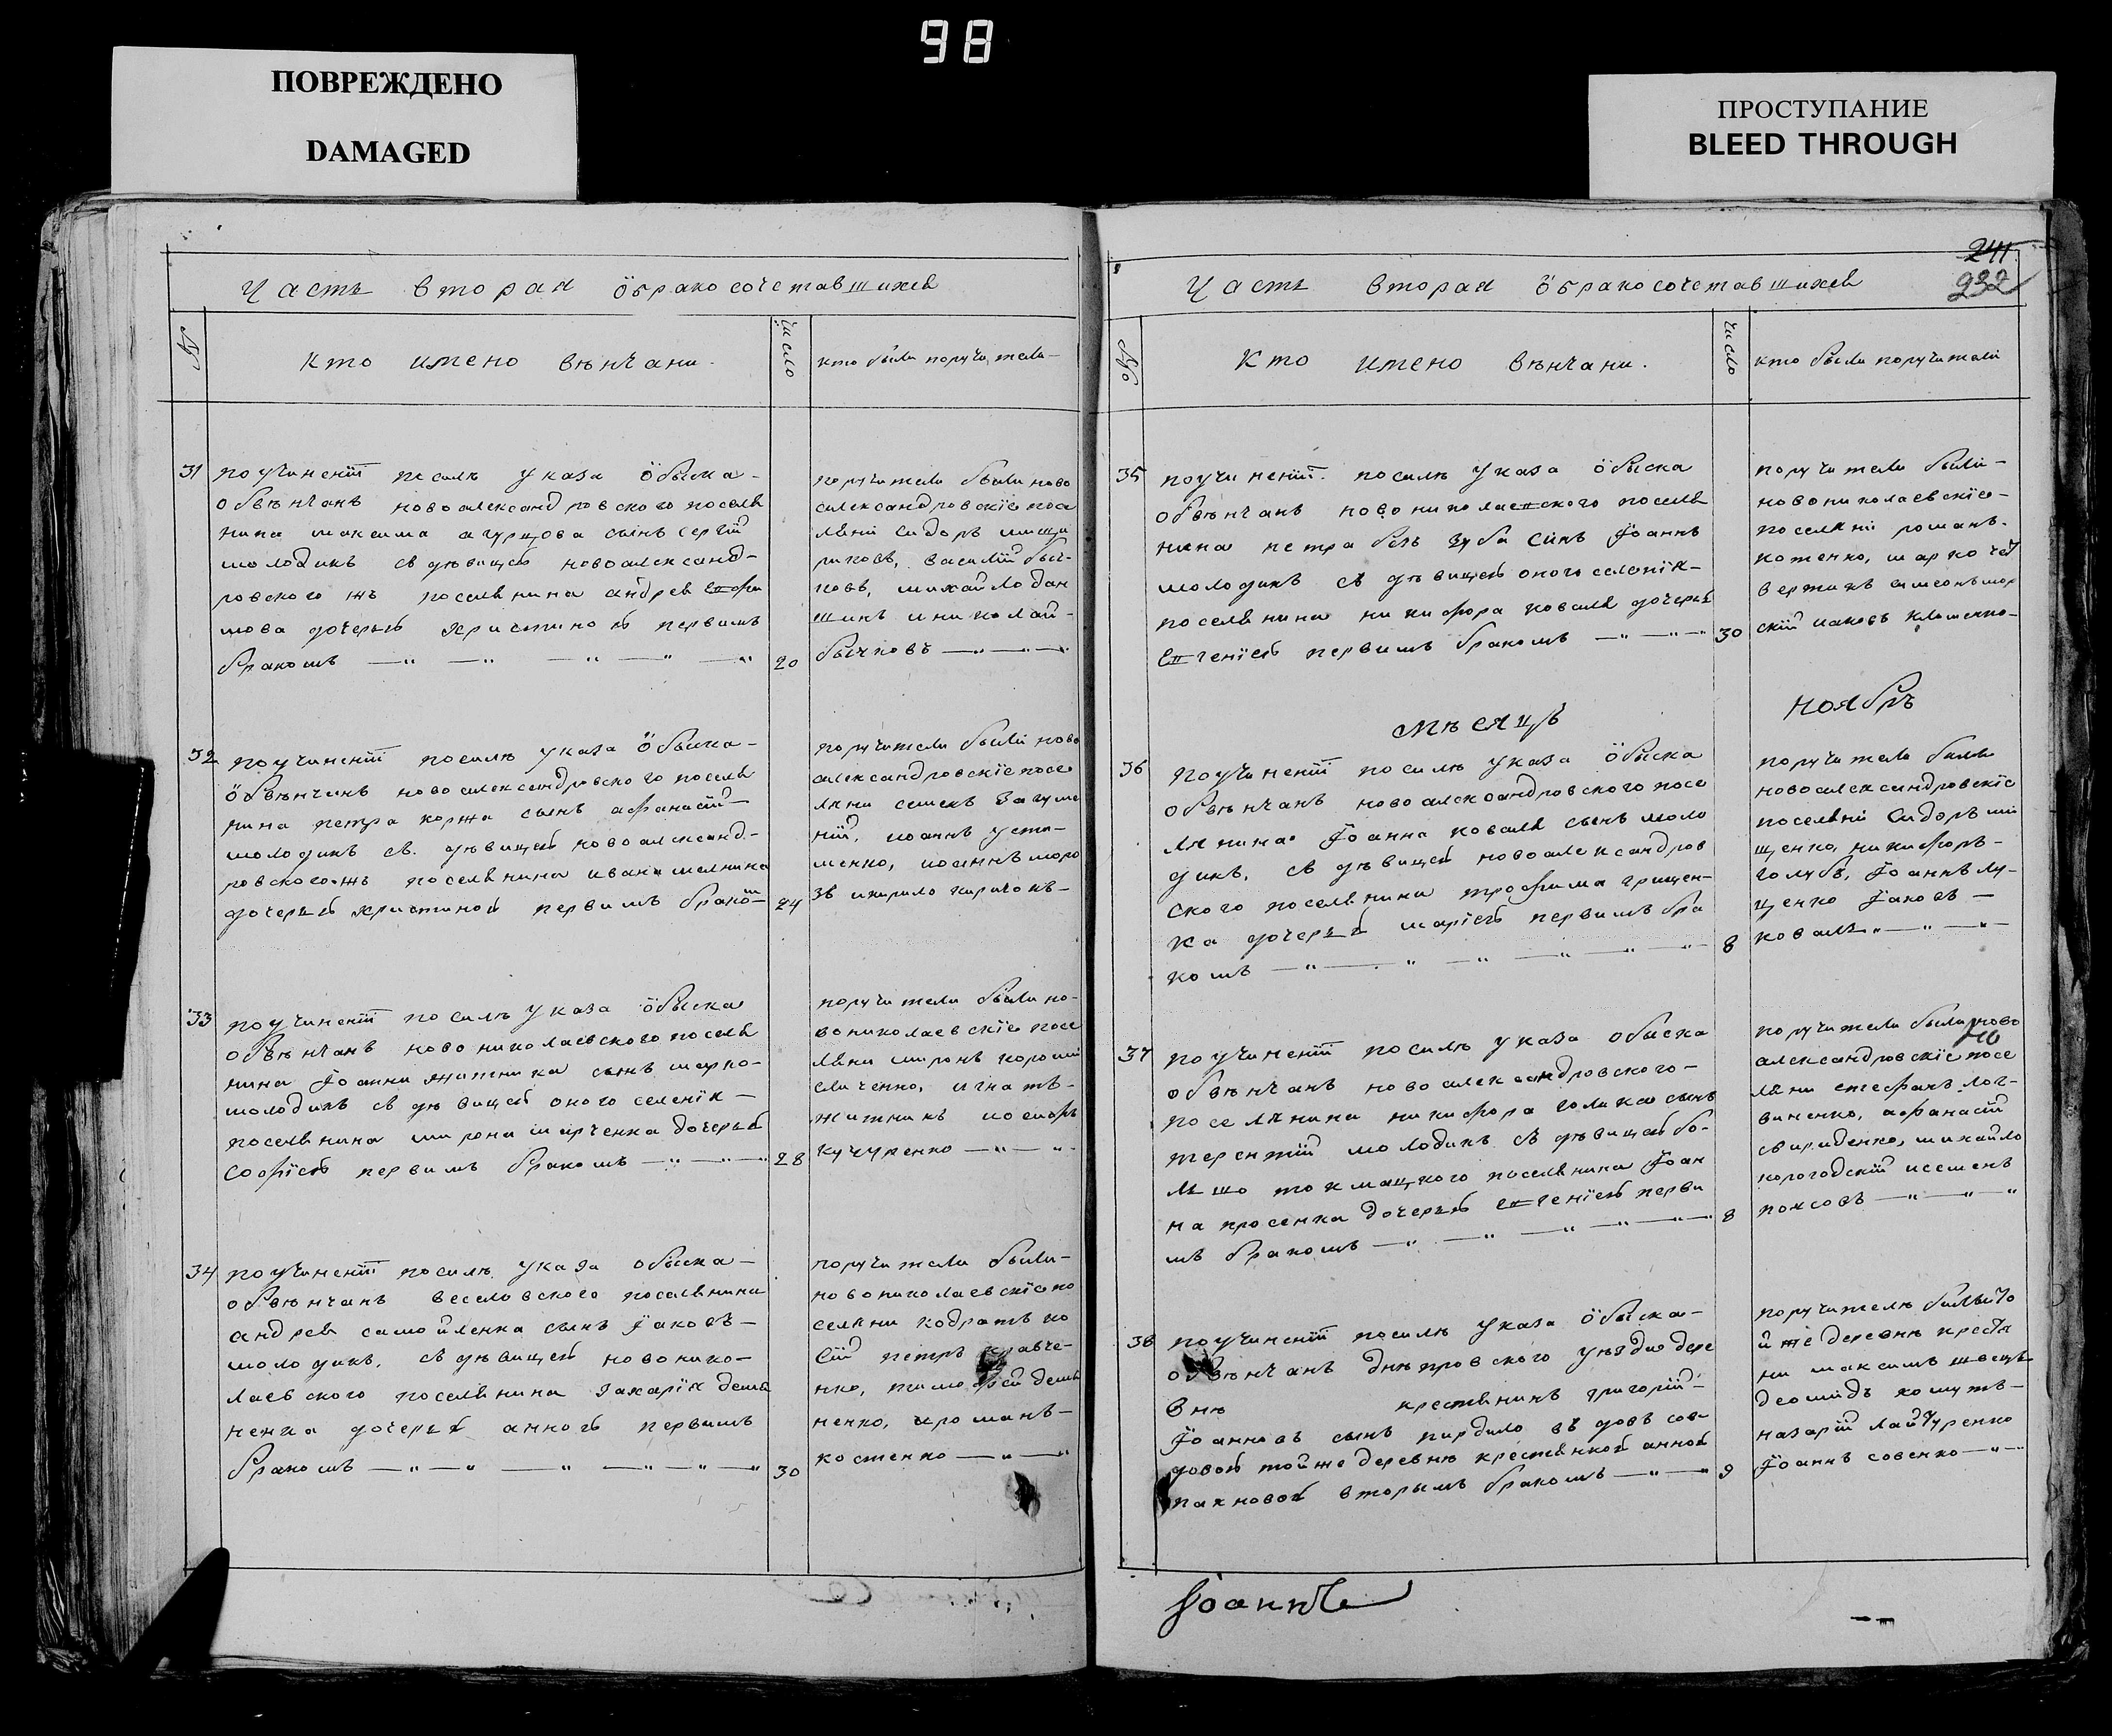 98
ПОВРЕЖДЕНО
DAMAGED
ПРОСТУПАНИЕ
BLEED THROUGH
Часть вторая ӧбракосочетавшихся
№
кто имено вѣнчани.
число
кто были поручители
31
поучиненїи посилѣ указа ӧбыска
обвѣнчанъ новоалександровского поселя
нина максима агурцова сынъ сергїй
молодикъ съ дѣвицей новоалександ-
ровского жъ поселянина андрея ефи
мова дочерью христиною первимъ
бракомъ
20
поручители были ново
александровскіе посе
ляни сидоръ мищи
риковъ, василїй быч-
ковъ, михайло дан
шинъ и николай
бычковъ
32
поучиненїи посилѣ указа ӧбыска
ӧбвѣнчанъ новоалександровского поселя
нина петра коржа сынъ афанасїй
молодикъ съ. дѣвицей новоалександ-
ровского жъ поселянина ивана мелника
дочерью христиной первимъ брако м
24
поручители были ново
александровскїе посе
ляни семенъ загуме
ний, иоаннъ усти-
менко, иоаннъ моро
зъ икирило киричокъ
33
поучиненїи посилѣ указа ӧбыска
обвѣнчанъ новониколаевского поселя
нина Їоанна житника сынъ марко
молодикъ съ дѣвицей оного селенїя
поселянина мирона марченка дочерью
софїею первимъ бракомъ
28
поручители были но-
вониколаевскїе посе
ляни миронъ хороши
сличенко, игнатъ
житникъ иосифъ
кучуренко
34
поучиненїи посилѣ указа обыска
обвѣнчанъ веселовского поселянина
андрея самойленка сынъ Їаковъ
молодикъ, съ дѣвицей новонико-
лаевского поселянина захарїя демя
ненка дочерью анною первимъ
бракомъ
30
поручители были
новониколаевскїе по
селяни кодратъ ко
сїй петръ кравче-
нко, тимофей демя
ненко, ироманъ
костенко
241
232
Часть вторая ӧбракосочетавшихся
№
кто имено вѣнчани.
число
кто были поручители
35
поучиненїи. посилѣ указа ӧбыска
обвѣнчанъ новониколаевского поселя
нина петра безъ зуба синъ Їоаннъ
молодикъ съ дѣвицей оного селенїя
поселянина никифора коваля дочерью
евгенїею первимъ бракомъ
30
поручители были
новониколаевскїе
поселяни романъ
котенко, марко чет
вертакъ симеонъ мор
скїй иаковъ клименко
мѣсяцъ
ноябръ
36
поучиненїи посилѣ указа ӧбыска
обвѣнчанъ новоалександровского посе
лянина Їоанна коваля сынъ моло
дикъ, съ дѣвицей новоалександров
ского поселянина трофима грицен-
ка дочерью марїею первимъ бра
комъ
8
поручители были
новоалександровскїе
поселяни сидоръ ми
щенко, никифоръ
голубъ, Їоаннъ лу-
ценко Їаковъ
коваль
37
поучиненїи посилѣ указа обыска
обвѣнчанъ новоалександровского
поселянина никифора голика сынъ
терентїй молодикъ съ дѣвицей бо-
льшо токмацкого поселянина Їоан
на просенка дочерью евгенїею перви
мъ бракомъ
8
поручители были ново
александровскїе посе
ляни стефанъ лог-
виненко, афанасїй
свириденко, михайло
корогодскїй исеменъ
поясовъ
38
поучиненїи посилѣ указа ӧбыска
обвѣнчанъ днѣпровского уѣзда дере
внѣ крестянинъ григорїй
Їоанновъ сынъ пирдило съ вдов
довой тойже деревнѣ крестянкой анной
пахновой вторымъ бракомъ
9
поручителѣ были то
й же деревнѣ крестя
ни максимъ швецъ
деомидъ хомутъ
назарїй лайчуренко
Їоаннъ совенко
Їоаннъ